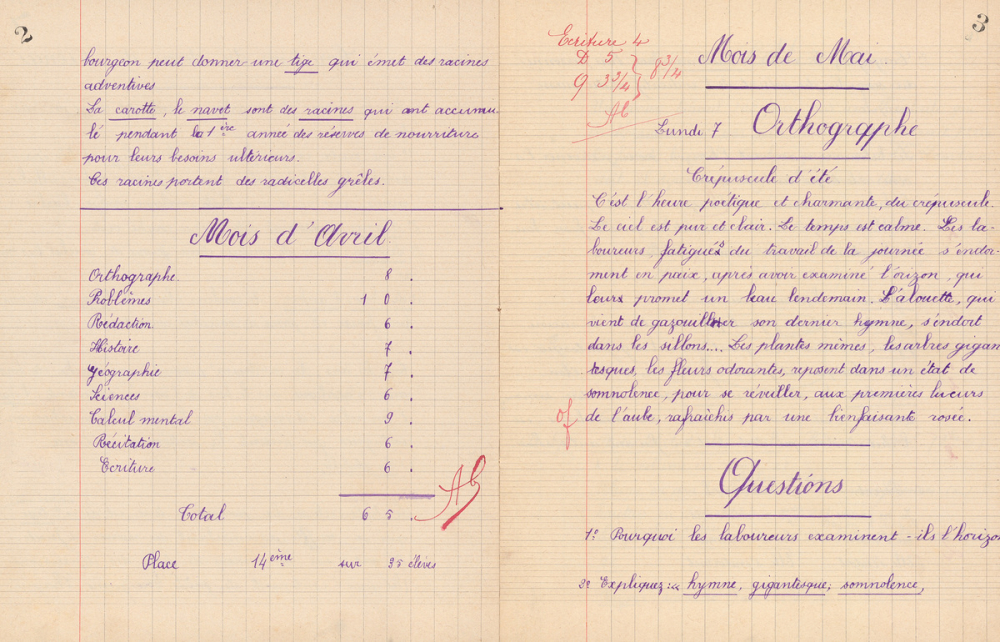 2
bourgeon peut donner une tige qui émet des racines
adventives
La carotte, le navet sont des racines qui ont accumu
lé pendant la 1ère année des réserves de nourriture
pour leurs besoins ultérieurs.
Ces racines portent des radicelles grêles.
Mois d'Avril
Orthographe 8.
Problèmes 10.
Rédaction 6.
Histoire 7.
Géographie 7.
Sciences 6.
Calcul mental 9.
Récitation 6.
Ecriture 6.
Ab
Total 65.
Place 14ème sur 35 élèves
3
Ecriture 4
D 5
9 3 3/4
8 3/4
Ab
Mois de Mai
Lundi 7 Orthographe
Crépuscule d'été
C'est l'heure poétique et charmante, du crépuscule.
Le ciel est pur et clair. Le temps est calme. Les la-
boureurs, fatigués du travail de la journée s'endor-
ment en paix, après avoir examiné l'orizon, qui
leurs promet un beau lendemain. L'alouette, qui
vient de gazouiller son dernier hymne, s'endort
dans les sillons.... Les plantes mêmes, les arbres gigan
tesques, les fleurs odorantes, reposent dans un état de
somnolence, pour se réveiller, aux premières lueurs
de l'aube, rafraîchis par une bienfaisante rosée.
Questions
1º Pourquoi les laboureurs examinent-ils l'horizon
3º Expliquez :« hymne, gigantesque; somnolence,